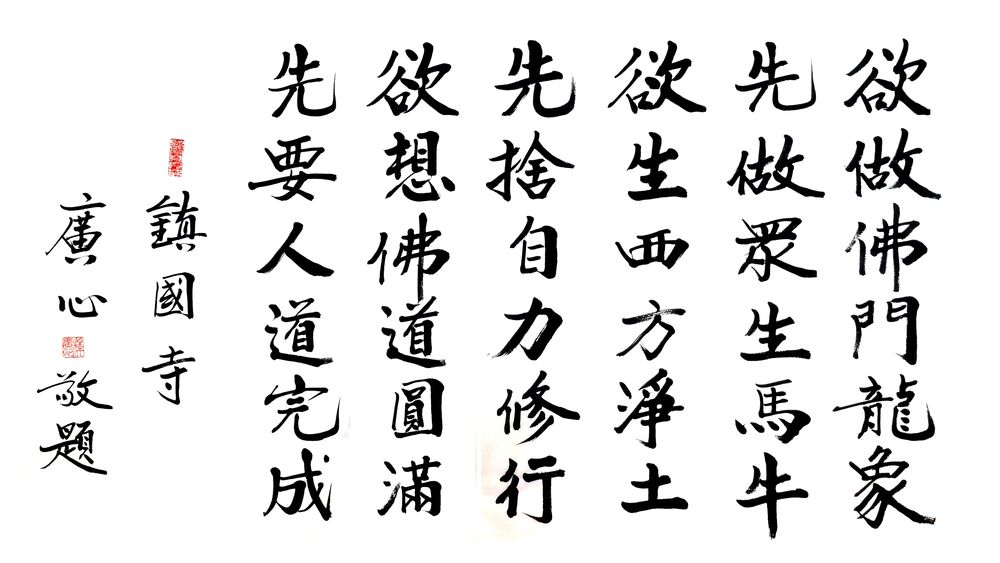 欲做佛門龍象
先做眾生馬牛
欲生西方淨土
先捨自力修行
欲想佛道圓滿
先要人道完成
鎮國寺
廣心敬題